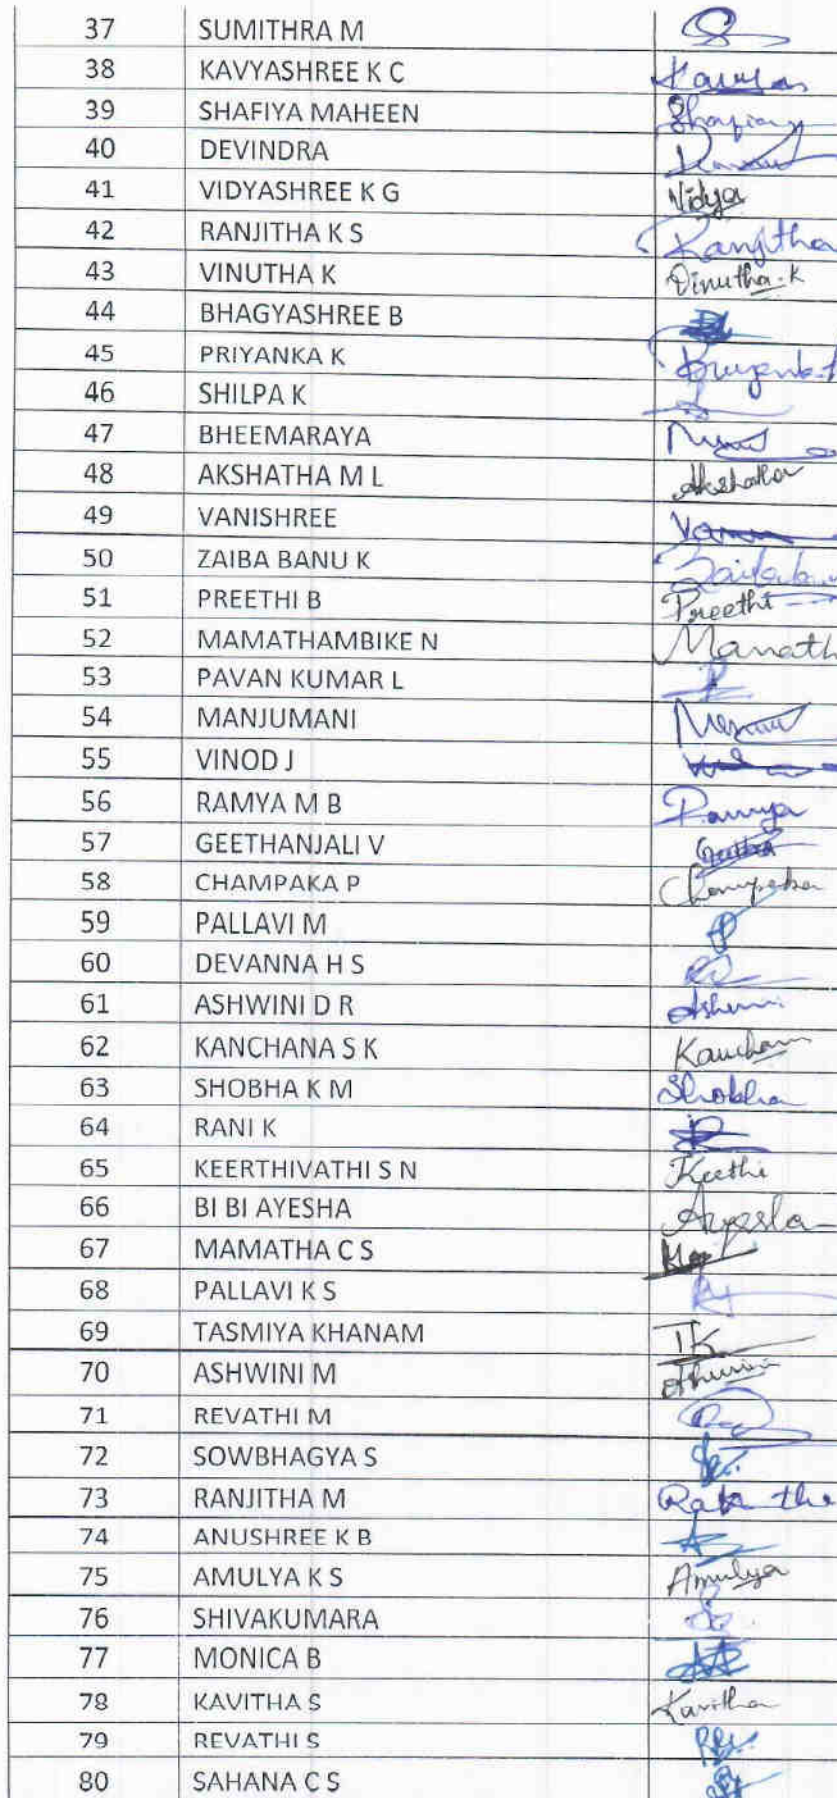 37 SUMITHRA M
38 KAVYASHREE K C
39 SHAFIYA MAHEEN
40 DEVINDRA
41 VIDYASHREE K G Vidya
42 RANJITHA K S Ranjitha
43 VINUTHA K Vinutha.K
44 BHAGYASHREE B
45 PRIYANKA K
46 SHILPA K
47 BHEEMARAYA
48 AKSHATHA M L Akshatha
49 VANISHREE
50 ZAIBA BANU K
51 PREETHI B Preethi
52 MAMATHAMBIKE N
53 PAVAN KUMAR L
54 MANJUMANI
55 VINOD J
56 RAMYA M B Ramya
57 GEETHANJALI V
58 CHAMPAKA P Champaka
59 PALLAVI M
60 DEVANNA H S
61 ASHWINI D R
62 KANCHANA S K
63 SHOBHA K M Shobha
64 RANI K
65 KEERTHIVATHI S N
66 BI BI AYESHA Ayesha
67 MAMATHA C S
68 PALLAVI K S
69 TASMIYA KHANAM TK
70 ASHWINI M
71 REVATHI M
72 SOWBHAGYA S
73 RANJITHA M
74 ANUSHREE K B
75 AMULYA K S Amulya
76 SHIVAKUMARA
77 MONICA B
78 KAVITHA S Kavitha
79 REVATHI S
80 SAHANA C S